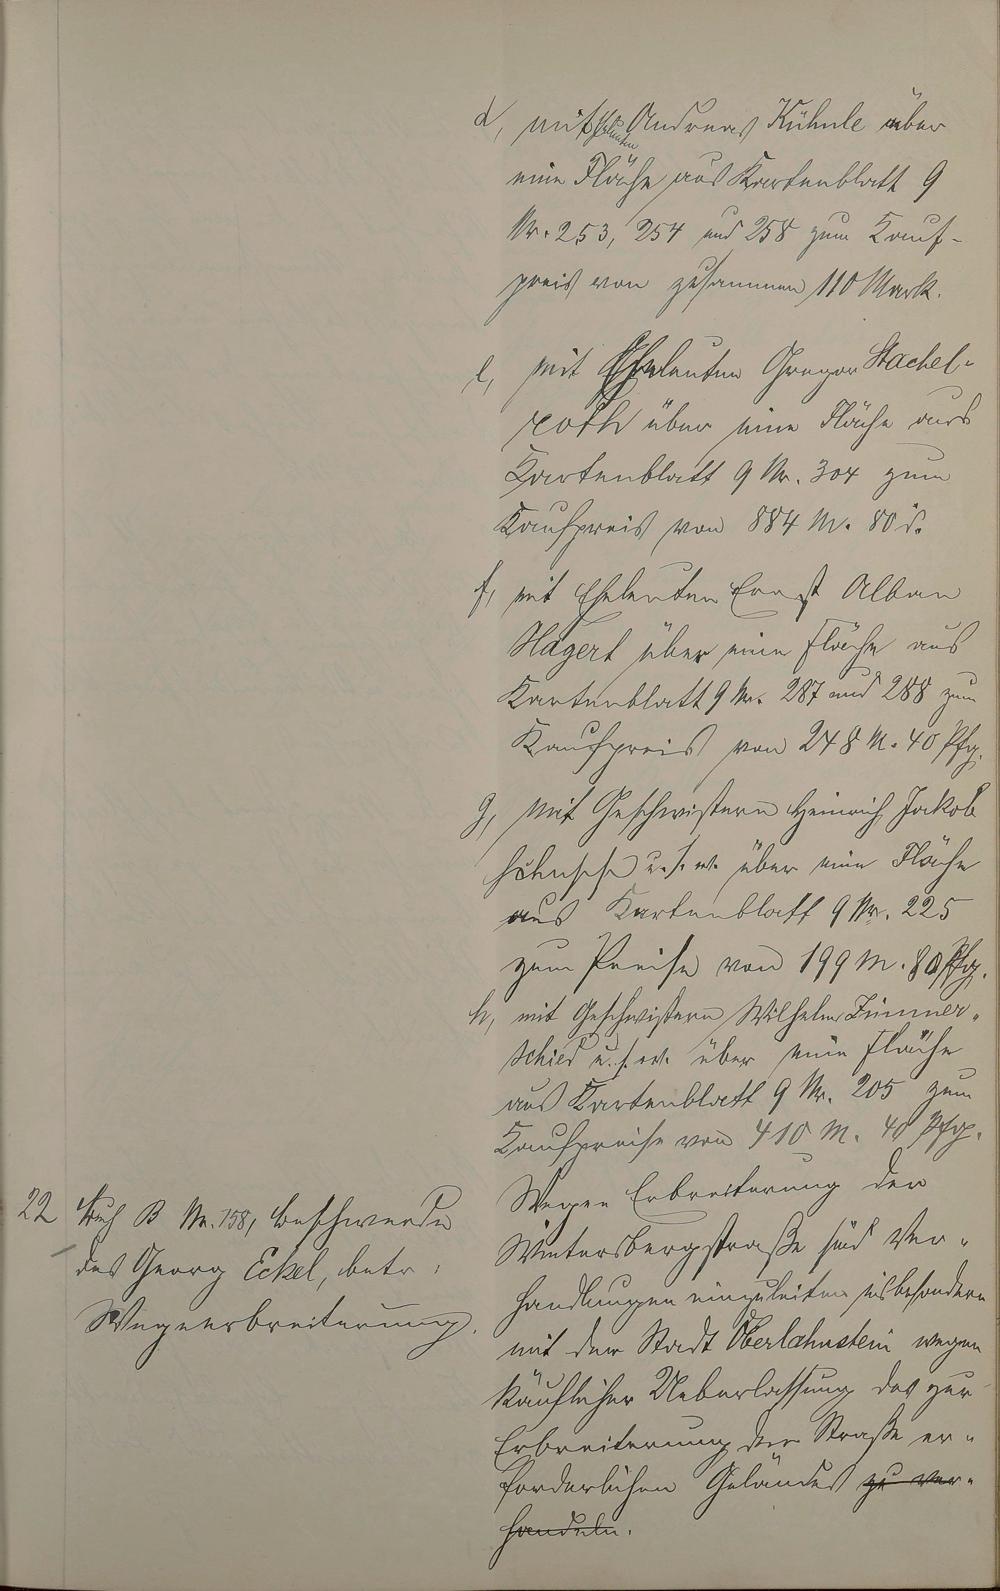 d, mit Eheleuten Andreas Kühnle über
eine Fläche aus Kartenblatt 9
Nr. 253, 254 und 258 zum Kauf-
preis von zusammen 110 Mark.
e, mit Eheleuten Gregor Stachel-
roth über eine Fläche aus
Kartenblatt 9 Nr. 304 zum
Kaufpreis von 884 M. 80 d.
f, mit Eheleuten Ernst Alban
Hägert über eine Fläche aus
Kartenblatt 9 Nr. 287 und 288 zum
Kaufpreis von 248 M. 40 Pfg.
g, mit Geschwistern Heinrich Jakob
u.s.w. über eine Fläche
aus Kartenblatt 9 Nr. 225
zum Preise von 199 M. 80 Pfg.
h, mit Geschwistern Wilhelm Zimmer-
schied u.s.w. über eine Fläche
aus Kartenblatt 9 Nr. 205 zum
Kaufpreise von 410 M. 40 Pfg.
22 B Nr. 158, Beschwerde
des Georg Eckel, betr.
Wegeerbreiterung.
Wegen Erbreiterung der
Wintersbergstraße sind Ver-
handlungen einzuleiten insbesondere
mit der Stadt Oberlahnstein wegen
käuflicher Ueberlassung des zur
Erbreiterung der Straße er-
forderlichen Geländes zu ver-
handeln.